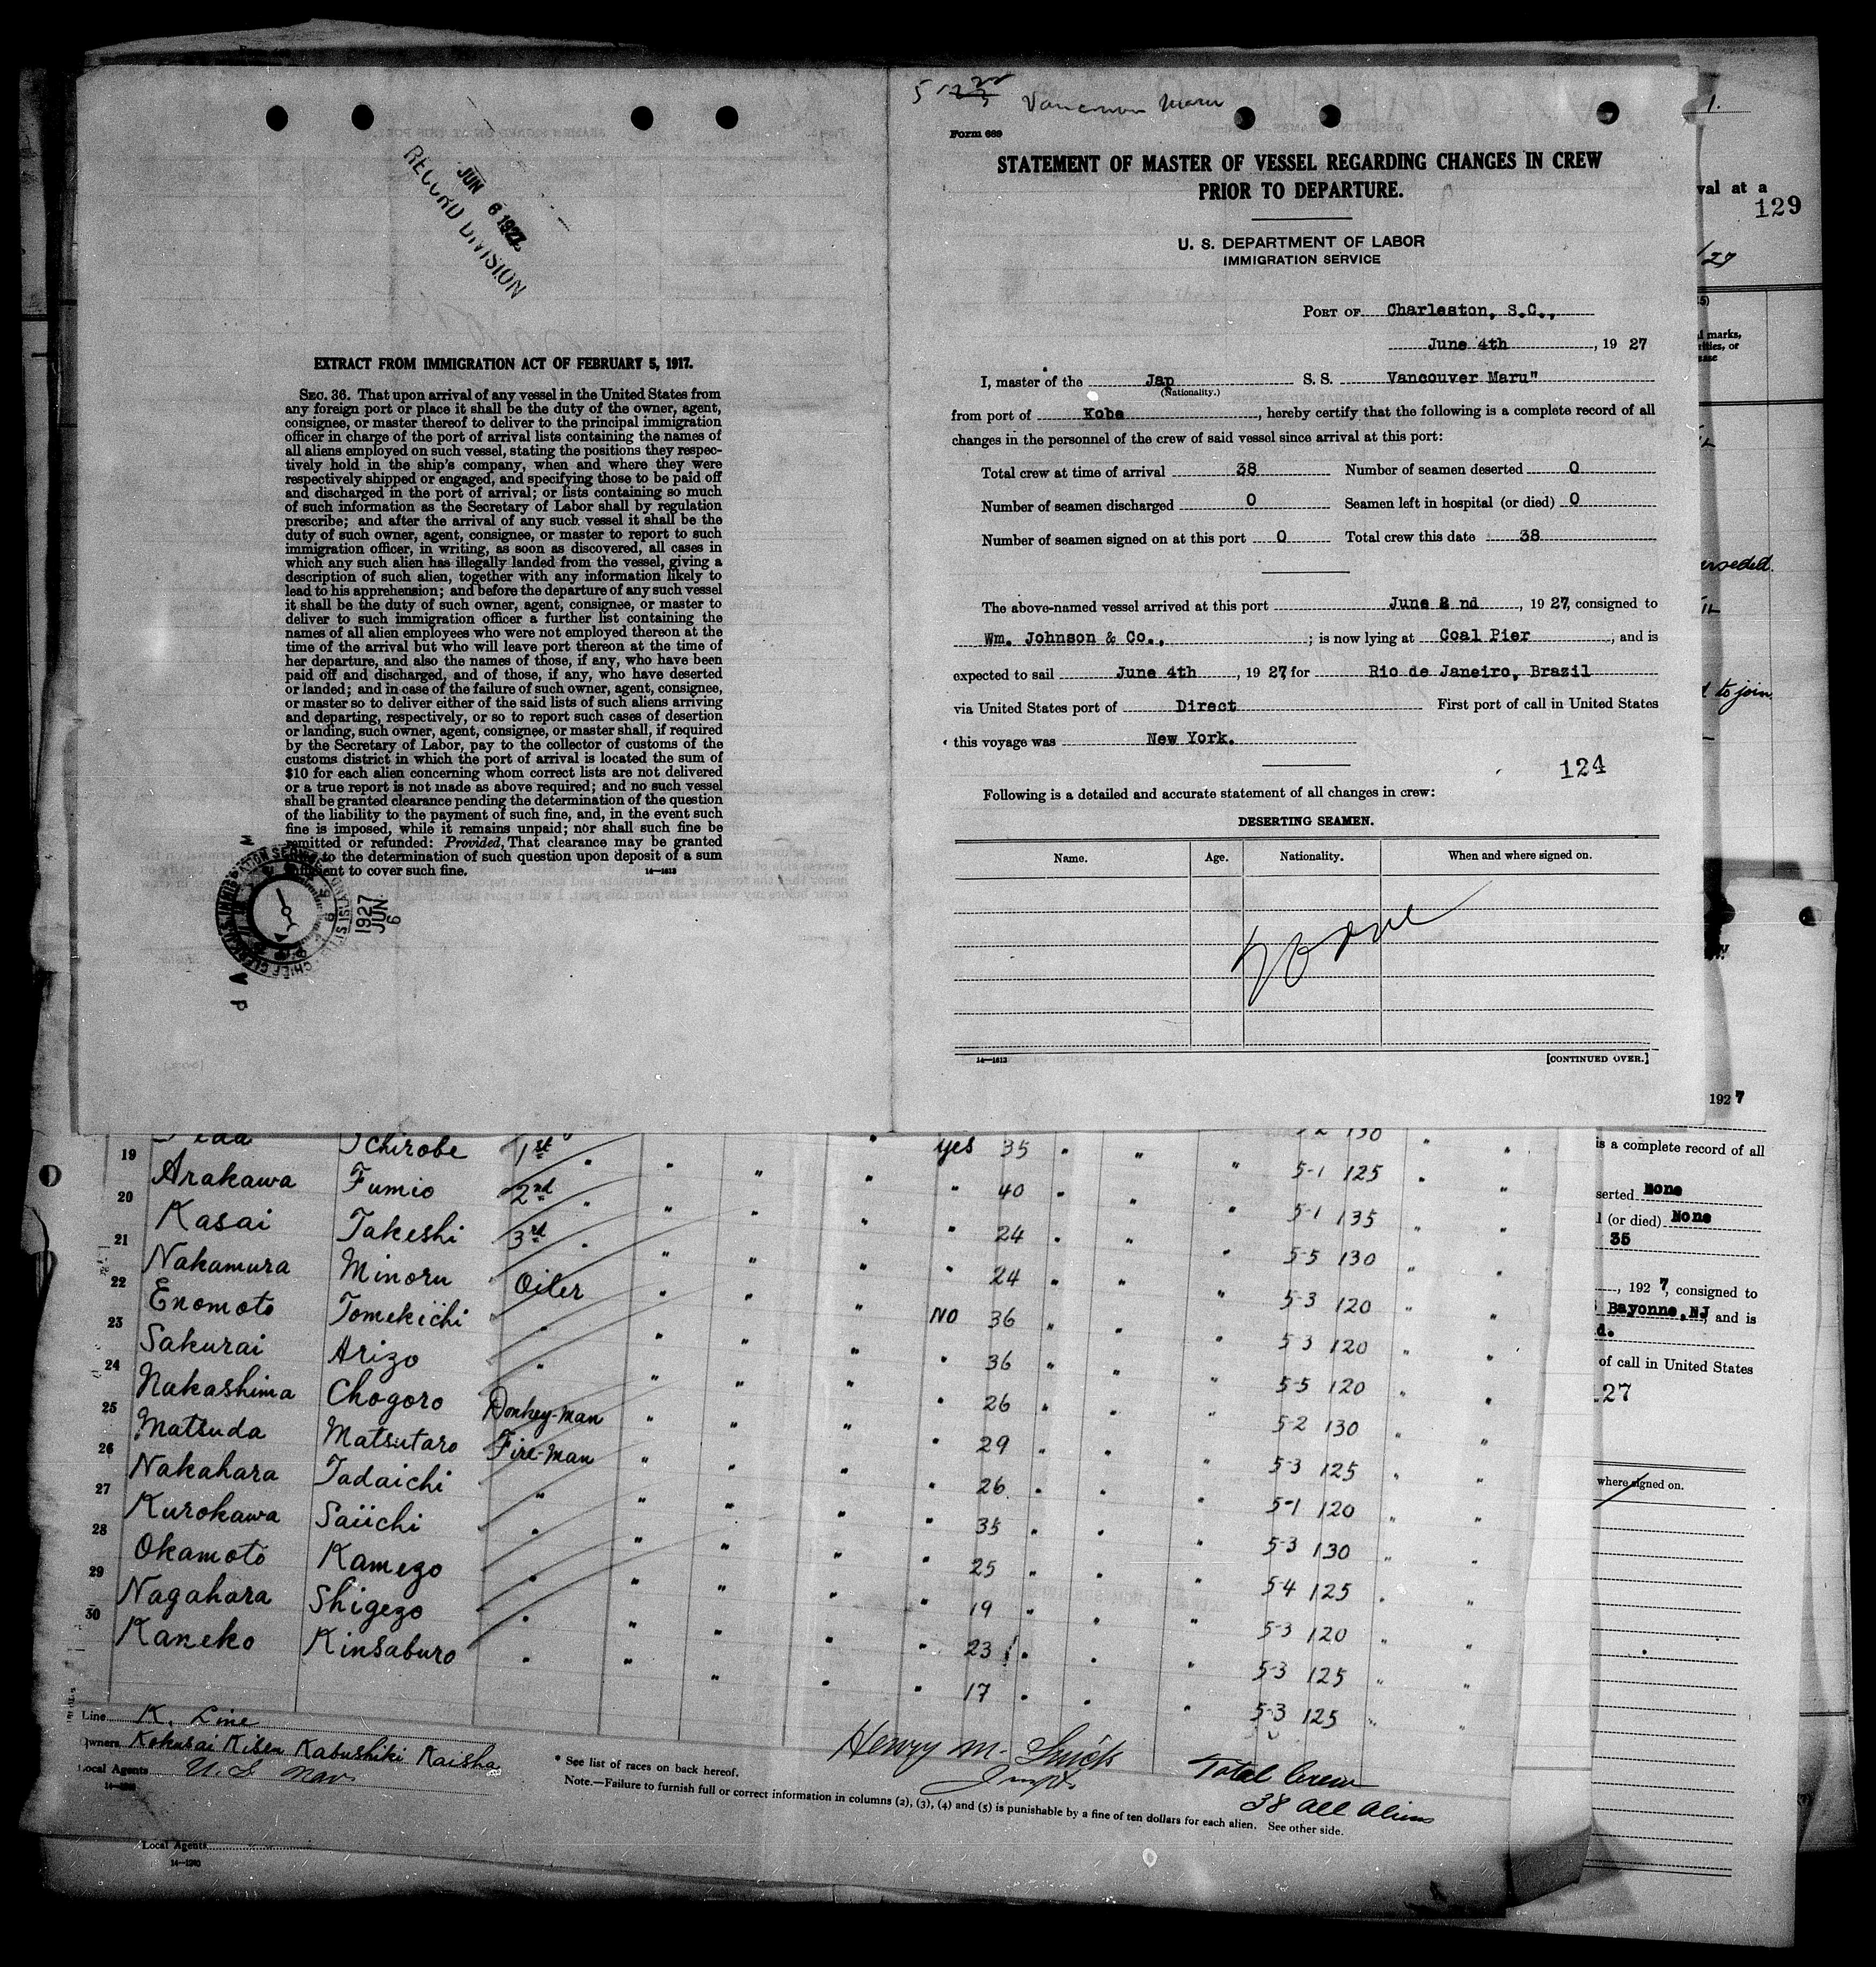 JUN 6 1927
RECORD DIVISION
EXTRACT FROM IMMIGRATION ACT OF FEBRUARY 5, 1917.
SEC. 36. That upon arrival of any vessel in the United States from
any foreign port or place it shall be the duty of the owner, agent,
consignee, or master thereof to deliver to the principal immigration
officer in charge of the port of arrival lists containing the names of
all aliens employed on such vessel, stating the positions they respec-
tively hold in the ship's company, when and where they were
respectively shipped or engaged, and specifying those to be paid off
and discharged in the port of arrival; or lists containing so much
of such information as the Secretary of Labor shall by regulation
prescribe; and after the arrival of any such vessel it shall be the
duty of such owner, agent, consignee, or master to report to such
immigration officer, in writing, as soon as discovered, all cases in
which any such alien has illegally landed from the vessel, giving a
description of such alien, together with any information likely to
lead to his apprehension; and before the departure of any such vessel
it shall be the duty of such owner, agent, consignee, or master to
deliver to such immigration officer a further list containing the
names of all alien employees who were not employed thereon at the
time of the arrival but who will leave port thereon at the time of
her departure, and also the names of those, if any, who have been
paid off and discharged, and of those, if any, who have deserted
or landed; and in case of the failure of such owner, agent, consignee,
or master so to deliver either of the said lists of such aliens arriving
and departing, respectively, or so to report such cases of desertion
or landing, such owner, agent, consignee, or master shall, if required
by the Secretary of Labor, pay to the collector of customs of the
customs district in which the port of arrival is located the sum of
$10 for each alien concerning whom correct lists are not delivered
or a true report is not made as above required; and no such vessel
shall be granted clearance pending the determination of the question
of the liability to the payment of such fine, and, in the event such
fine is imposed, while it remains unpaid; nor shall such fine be
remitted or refunded: Provided, That clearance may be granted
to the determination of such question upon deposit of a sum
sufficient to cover such fine.
14—1613
1927 JUN 6
Vancouver Maru
Form 689
STATEMENT OF MASTER OF VESSEL REGARDING CHANGES IN CREW
PRIOR TO DEPARTURE.
U. S. DEPARTMENT OF LABOR
IMMIGRATION SERVICE
PORT OF Charleston, S.C.,
June 4th, 19 27
I, master of the Jap S. S. Vancouver Maru"
(Nationality.)
from port of Kobe, hereby certify that the following is a complete record of all
changes in the personnel of the crew of said vessel since arrival at this port:
Total crew at time of arrival 38 Number of seamen deserted 0
Number of seamen discharged 0 Seamen left in hospital (or died) 0
Number of seamen signed on at this port 0 Total crew this date 38
The above-named vessel arrived at this port June 2 nd, 19 27, consigned to
Wm. Johnson & Co., ; is now lying at Coal Pier, and is
expected to sail June 4th, 19 27 for Rio de Janeiro, Brazil
via United States port of Direct First port of call in United States
this voyage was New York.
124
Following is a detailed and accurate statement of all changes in crew:
DESERTING SEAMEN.
Name. Age. Nationality. When and where signed on.
None
14—1613 [CONTINUED OVER.]
1.
val at a
129
/27
marks,
to join
192 7
is a complete record of all
serted None
l (or died) None
35
, 192 7, consigned to
Bayonne, NJ and is
d.
of call in United States
27
where signed on.
Ichirobe 1st 5-2 130
19 Arakawa Fumio 2nd " " " yes 35 " " " 5-1 125 " "
20 Kasai Takeshi 3rd " " " " 40 " " " 5-1 135 " "
21 Nakamura Minoru Oiler " " " " 24 " " " 5-5 130 " "
22 Enomoto Tomekichi " " " " " 24 " " " 5-3 120 " "
23 Sakurai Arizo " " " " NO 36 " " " 5-3 120 " "
24 Nakashima Chogoro Donkey-man " " " " 36 " " " 5-5 120 " "
25 Matsuda Matsutaro Fire-man " " " " 26 " " " 5-2 130 " "
26 Nakahara Tadaichi " " " " " 29 " " " 5-3 125 " "
27 Kurokawa Saiichi " " " " " 26 " " " 5-1 120 " "
28 Okamoto Kamezo " " " " " 35 " " " 5-3 130 " "
29 Nagahara Shigezo " " " " " 25 " " " 5-4 125 " "
30 Kaneko Kinsaburo " " " " " 19 " " " 5-3 120 " "
" 23 " " " 5-3 125 " "
" 17 " " " 5-3 125 " "
Line K. Line
Owners Kokusai Kisen Kabushiki Kaisha
Local Agents U.S Nav
14—1240
* See list of races on back hereof.
Note.—Failure to furnish full or correct information in columns (2), (3), (4) and (5) is punishable by a fine of ten dollars for each alien. See other side.
Henry M.
Total Crew
38 all aliens
Local Agents
14—1240